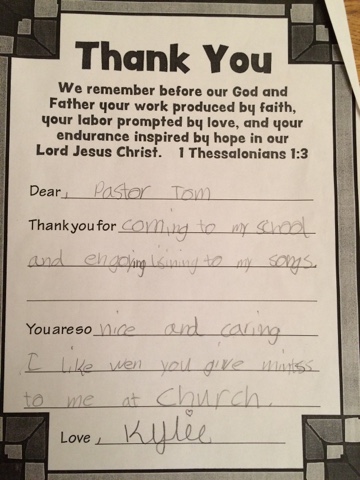 Thank You
We remember before our God and
Father your work produced by faith,
your labor prompted by love, and your
endurance inspired by hope in our
Lord Jesus Christ. 1 Thessalonians 1:3
Dear, Pastor Tom
Thank you for coming to my school
and engoying lisining to my songs.
You are so nice and caring
I like wen you give mintss
to me at Church.
Love, Kylie